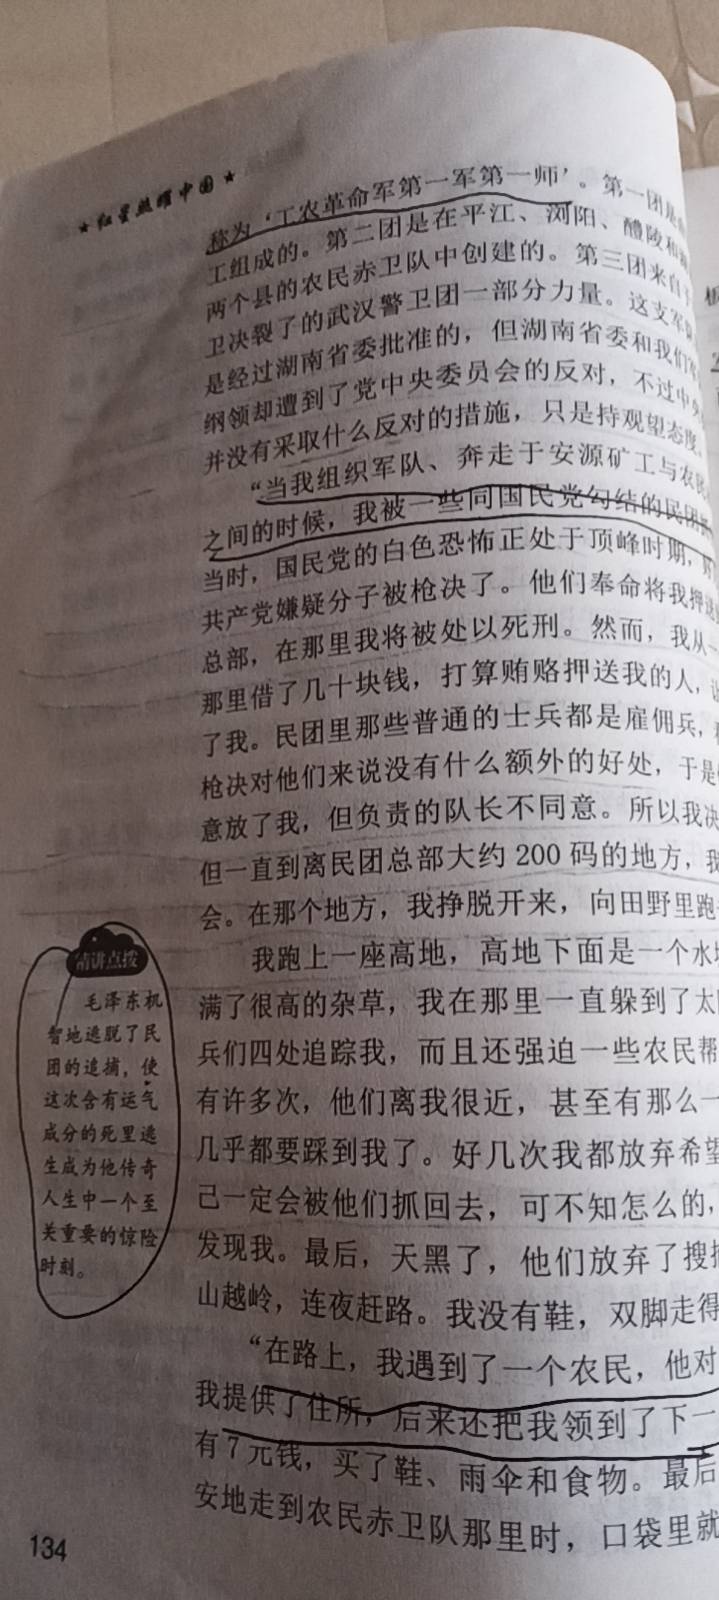 ★ 红星照耀中国 ★
称为‘工农革命军第一军第一师’。第一团是
工组成的。第二团是在平江、浏阳、醴陵和
两个县的农民赤卫队中创建的。第三团来自
卫决裂了的武汉警卫团一部分力量。这支军
是经过湖南省委批准的，但湖南省委和我们
纲领却遭到了党中央委员会的反对，不过中央
并没有采取什么反对的措施，只是持观望态度。
“当我组织军队、奔走于安源矿工与农民
之间的时候，我被一些同国民党勾结的民团
当时，国民党的白色恐怖正处于顶峰时期，
共产党嫌疑分子被枪决了。他们奉命将我押送
总部，在那里我将被处以死刑。然而，我从一
那里借了几十块钱，打算贿赂押送我的人，
了我。民团里那些普通的士兵都是雇佣兵，
枪决对他们来说没有什么额外的好处，于是
意放了我，但负责的队长不同意。所以我决
但一直到离民团总部大约 200 码的地方，我
会。在那个地方，我挣脱开来，向田野里跑
我跑上一座高地，高地下面是一个水
满了很高的杂草，我在那里一直躲到了太
兵们四处追踪我，而且还强迫一些农民帮
有许多次，他们离我很近，甚至有那么一
几乎都要踩到我了。好几次我都放弃希望
己一定会被他们抓回去，可不知怎么的，
发现我。最后，天黑了，他们放弃了搜
山越岭，连夜赶路。我没有鞋，双脚走得
“在路上，我遇到了一个农民，他对
我提供了住所，后来还把我领到了下一
有7元钱，买了鞋、雨伞和食物。最后
安地走到农民赤卫队那里时，口袋里就
精讲点拨
毛泽东机
智地逃脱了民
团的追捕，使
这次含有运气
成分的死里逃
生成为他传奇
人生中一个至
关重要的惊险
时刻。
134